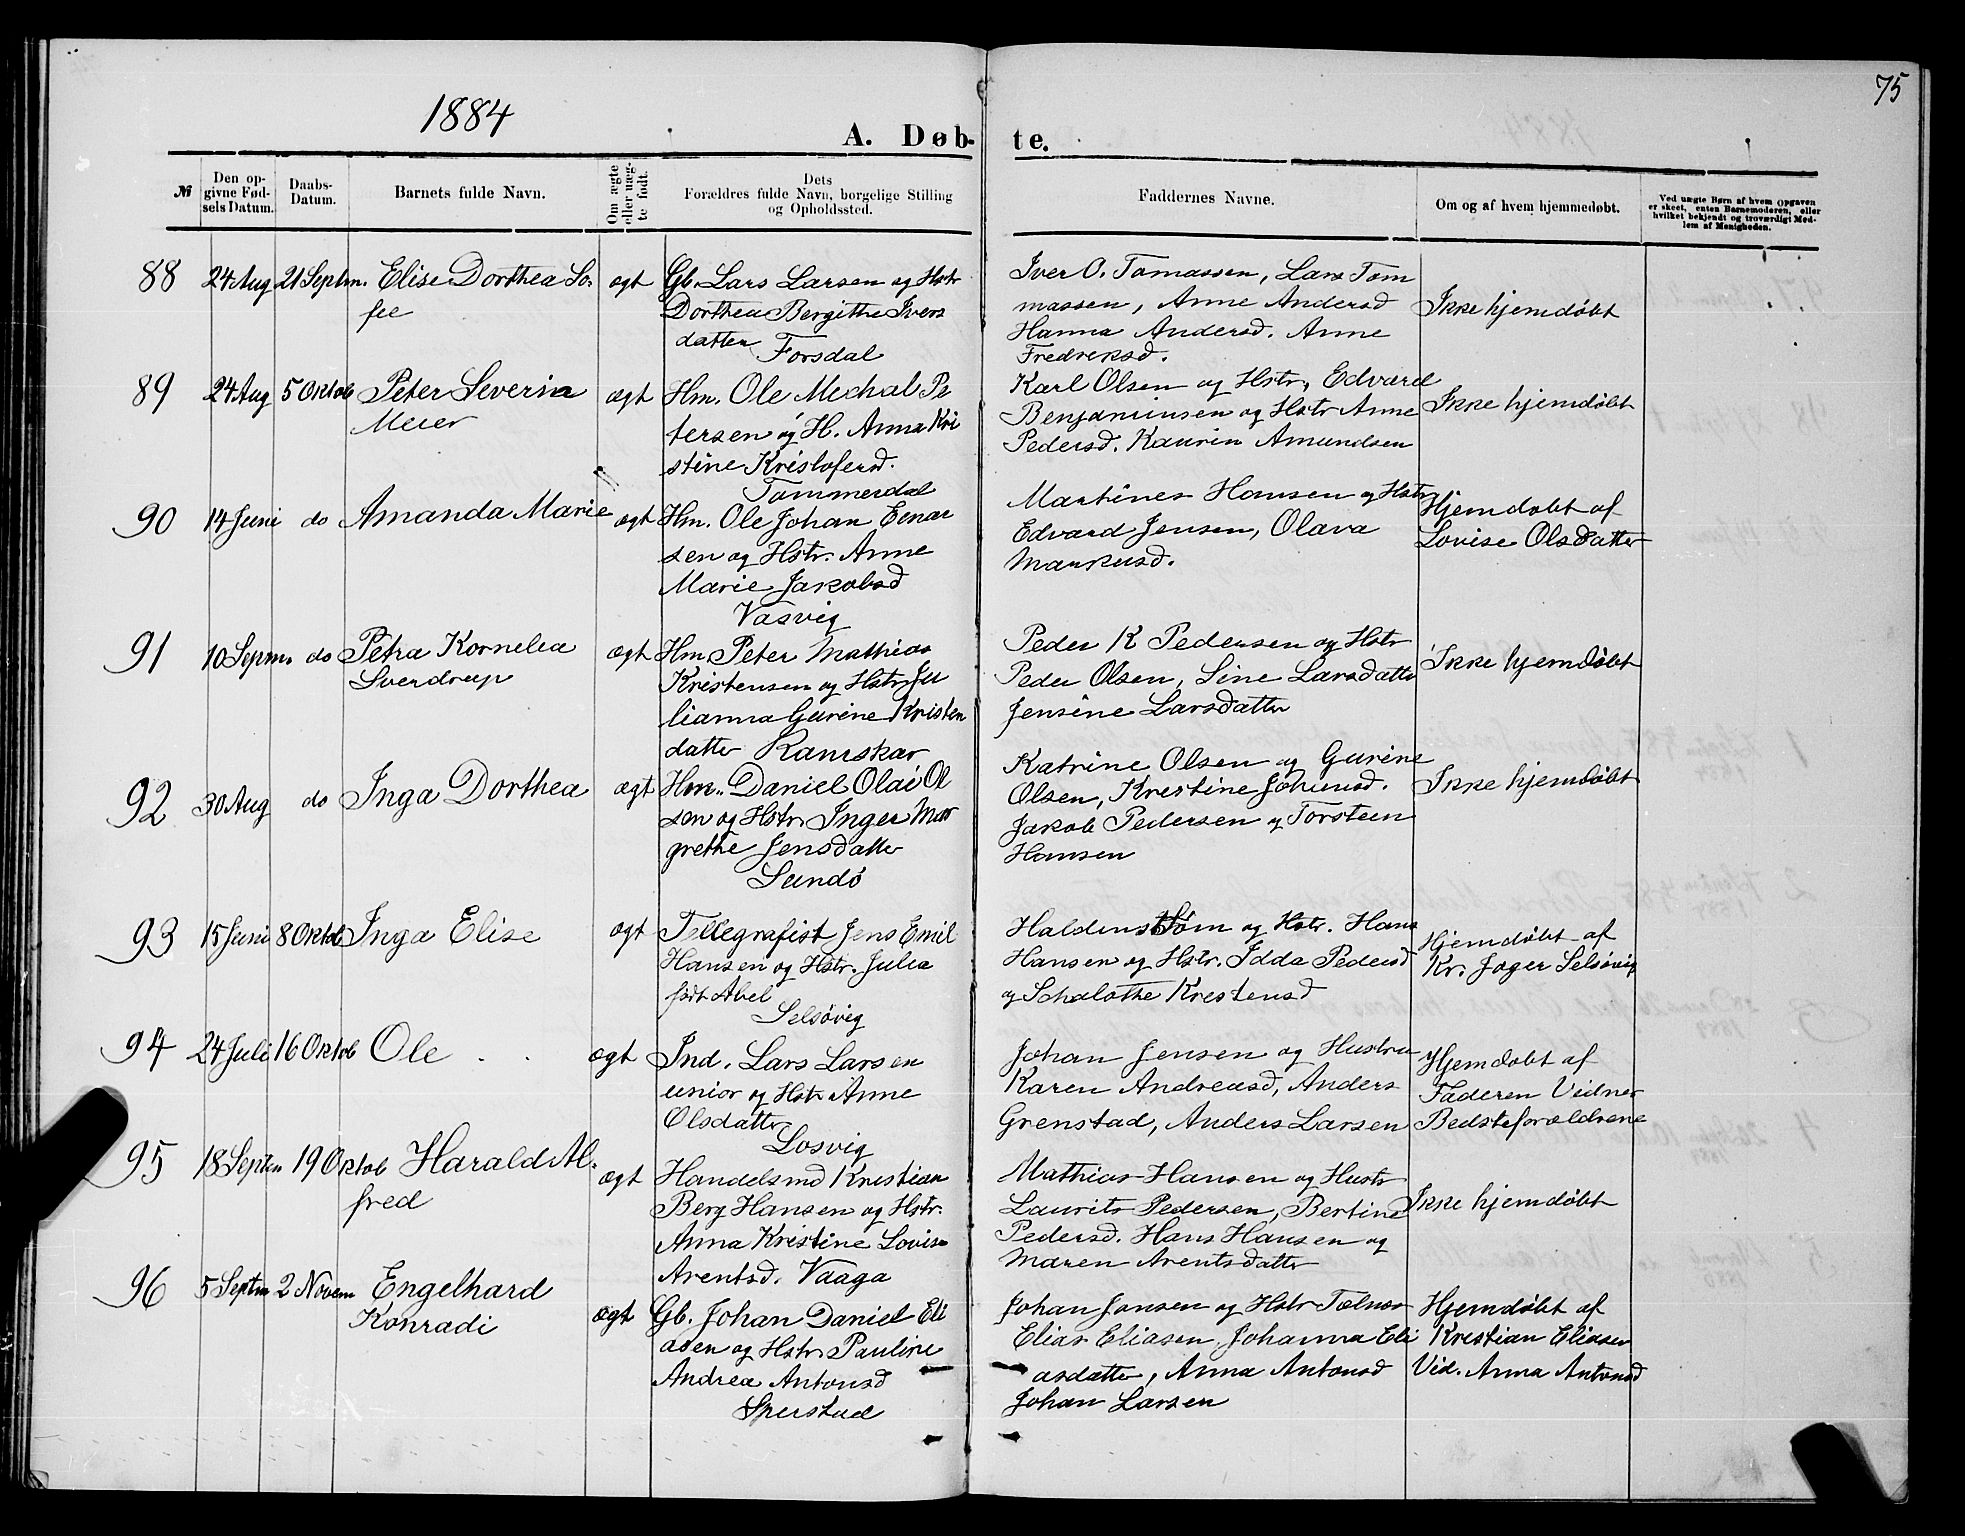 75
1884
A. Døb-
te.
№
Den op-
givne Fød-
sels Datum.
Daabs-
Datum.
Barnets fulde Navn.
Om ægte
eller uæg-
te født.
Dets
Forældres fulde Navn, borgelige Stilling
og Opholdssted.
Faddernes Navne.
Om og af hvem hjemmedøbt.
Ved uægte Børn af hvem opgaven
er skeet, enten Barnemoderen, eller
hvilket bekjendt og troværdigt Med-
lem af Menigheden.
88 24 Aug 21 Septm. Elise Dorthea So-
fie
ægt
Gb. Lars Larsen og Hstr
Dorthea Bergitthe Ivers
datter Forsdal
Iver O. Tomassen, Lars Tom
massen, Anne Andersd
Hanna Andersd. Anne
Fredreksd.
Ikke hjemdøbt
89 24 Aug 5 Oktob Peter Severin
Meier
ægt
Hm. Ole Mechal Pe
tersen og H. Anna Kri
stine Kristofersd.
Tommerdal
Karl Olsen og Hstr, Edvard
Benjaminsen og Hstr Anne
Pedersd. Kaurin Amundsen
Ikke hjemdøbt
90 14 Juni do Amanda Marie
ægt
Hm. Ole Johan Eenar
sen og Hstr. Anne
Marie Jakobsd
Vasvig
Martines Hansen og Hstr
Edvard Jensen, Olava
Markusd.
Hjemdøbt af
Lovise Olsdatter
91 10 Septm. do Petra Kornelea
Sverdrup
ægt
Hm. Peter Mathias
Kristensen og Hstr Ju
lianna Gurine Kristen
datter Ramskar
Peder K Pedersen og Hstr
Peder Olsen, Sine Larsdatte
Jensine Larsdatter
Ikke hjemdøbt
92 30 Aug do Inga Dorthea
ægt
Hm. Daniel Olai Ol
sen og Hstr, Inger Mar
grethe Jensdatter
Sundø
Katrine Olsen og Gurine
Olsen, Krestine Johansd.
Jakob Pedersen og Torsteen
Hansen
Ikke hjemdøbt
93 15 Juni 8 Oktob Inga Elise
ægt
Tellegrafist Jens Emil
Hansen og Hstr. Julia
født Abel
Selsøvig
Haldenstrøm og Hstr. Hans
Hansen og Hstr. Idda Pedersd
og Schalotte Krestensd
Hjemdøbt af
Kr. Jæger Selsøvig
94 24 Juli 16 Oktob Ole
ægt
Ind. Lars Larsen
unior og Hstr Anne
Olsdatter
Losvig
Johan Jensen og Hustru
Karen Andreasd, Anders
Grenstad, Anders Larsen
Hjemdøbt af
Faderen Vidner
Bedsteforældrene
95 18 Septm 19 Oktob Harald Al-
fred
ægt
Handelsmd Kristian
Berg Hansen og Hstr.
Anna Kristine Lovise
Arentsd. Vaaga
Mathias Hansen og Hustr
Laurits Pedersen, Bertine
Pedersd. Hans Hansen og
Maren Arentsdatter
Ikke hjemdøbt
96 5 Septm 2 Novem Engelhard
Konradi
ægt
Gb. Johan Daniel Eli
asen og Hstr. Pauline
Andrea Antonsd
Sperstad
Johan Jonsen og Hstr Tælnes
Elias Eliasen, Johanna Eli
asdatter, Anna Antonsd
Johan Larsen
Hjemdøbt af
Krestian Eliasen
Vid. Anna Antonsd